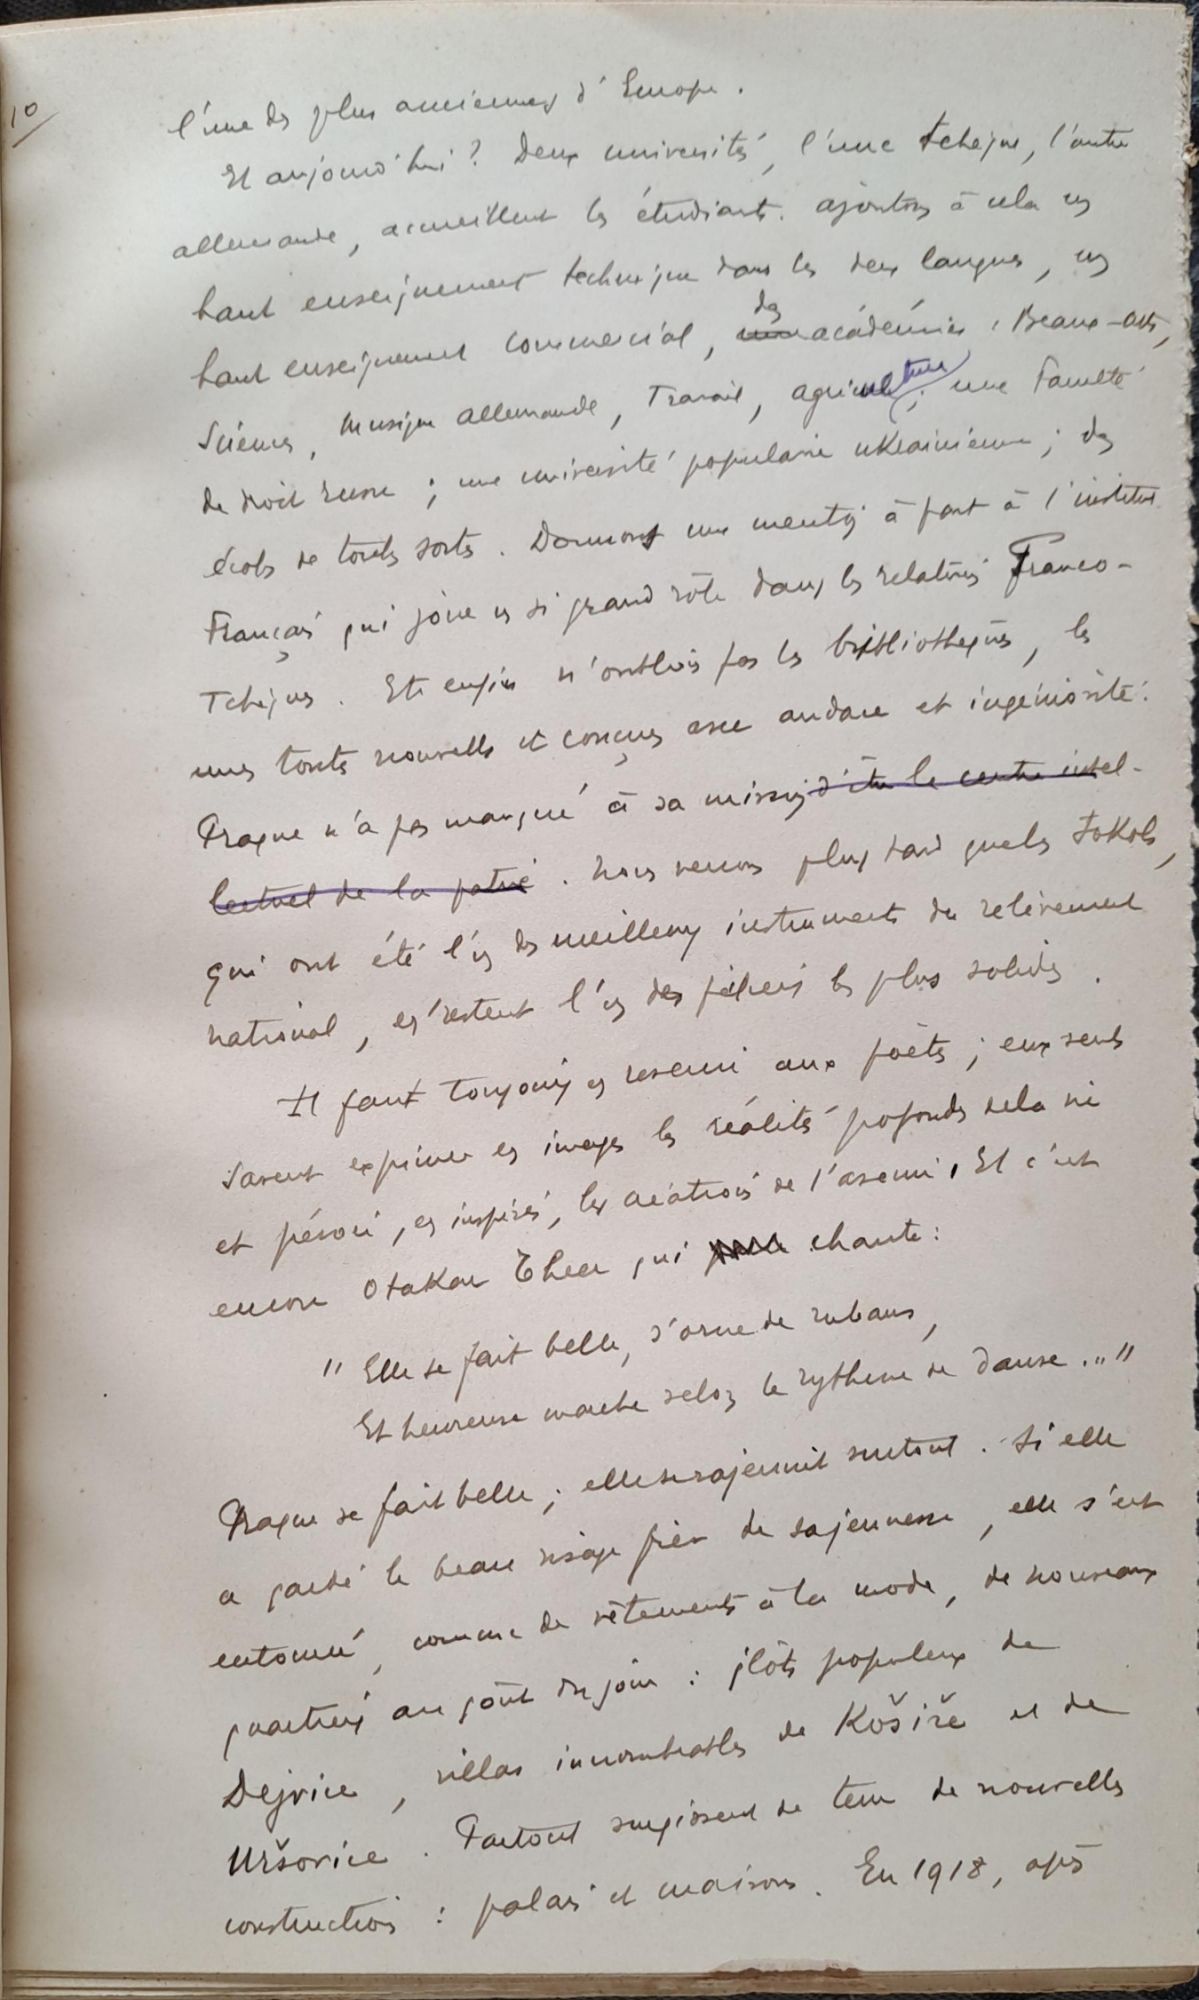 10
l'une des plus anciennes d'Europe.
Et aujourd'hui ? Deux universités, l'une tchèque, l'autre
allemande, accueillent les étudiants. ajoutons à cela un
haut enseignement technique dans les deux langues, un
haut enseignement commercial, des académies : Beaux-arts,
Sciences, Musique allemande, Travail, agriculture ; une Faculté
de droit russe ; une université populaire ukrainienne ; des
écoles de toutes sortes. Donnons une mention à part à l'institut
Français qui joue un si grand rôle dans les relations Franco-
Tchèques. Et enfin n'oublions pas les bibliothèques, les
unes toutes nouvelles et conçues avec audace et ingéniosité.
Prague n'a pas manqué à sa mission d'être le centre intel-
lectuel de la patrie. Nous verrons plus tard que les Sokols,
qui ont été l'un des meilleurs instruments du relèvement
national, en restent l'un des piliers les plus solides.
Il faut toujours en revenir aux poètes ; eux seuls
savent exprimer en images les réalités profondes de la vie
et prévoir, en inspirés, les créations de l'avenir. Et c'est
encore Otakar Theer qui chante :
" Elle se fait belle, s'orne de rubans,
Et heureuse marche selon le rythme de danse ... "
Prague se fait belle ; elle se rajeunit surtout. Si elle
a gardé le beau visage fier de sa jeunesse, elle s'est
entourée, comme de vêtements à la mode, de nouveaux
quartiers au goût du jour : îlots populeux de
Dejvice, villas innombrables de Košiře et de
Vršovice. Partout surgissent de terre de nouvelles
constructions : palais et maisons. En 1918, après